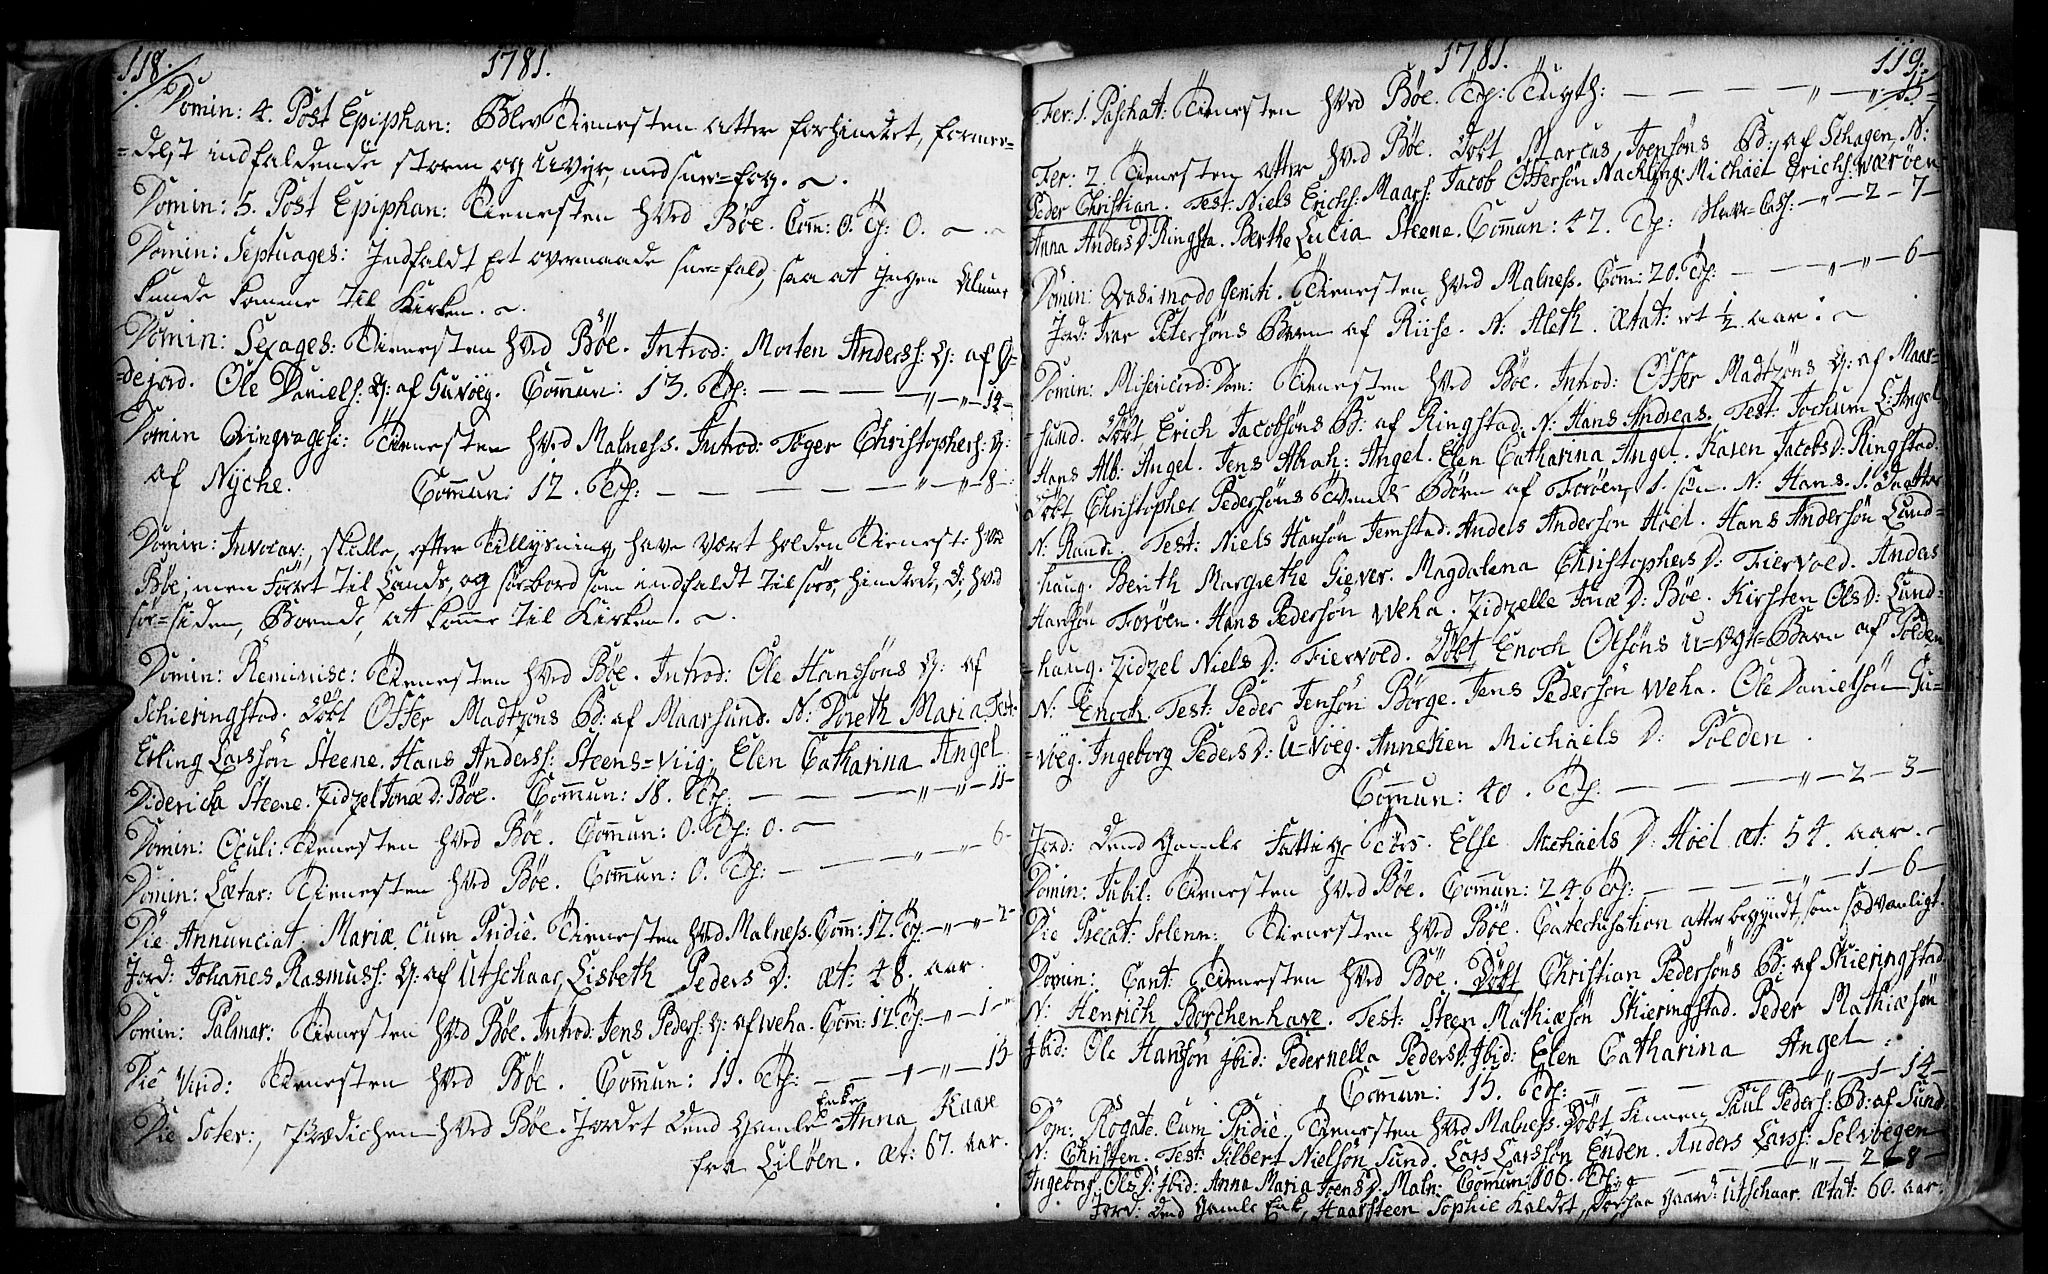 118. 1781.
Domin: 4. Post Epiphan: Blev Tienesten atter forhindret, formee-
=delst indfaldende storm og Uveyr, med snee=fog.
Domin: 5. Post Epiphan: Tienesten hved Böe. Com̄: 0. Tp: 0.
Domin: Septuages: Indfaldt Et overmaade snee=fald, saa at Ingen Almue
kunde komme til Kirken.
Domin: Sexages: Tienesten hved Böe. Introd: Morten Anderss: Q: af Ö-
=dejord. Ole Daniels: Q: af Guvöeg. Com̄un: 13. Tp: — — — „ — „ — 14 —
Domin Qvinqvages: Tienesten hved Malness. Introd: Töger Christophers: Q:
af Nÿche. Com̄un: 12. Tp: — — — — — „ — „ 8 —
Domin: Invocav:, skulle, efter Tillysning, have vært holden Tieneste hved
Böe; men Foret til Lands, og söe-bord som indfaldt til söes, hindrede, D: hved
söe=siden, Boende, at komme til Kirken.
Domin: Reminisc: Tienesten hved Böe. Introd: Ole Hanssöns Q: af
Schieringstad. Döbt Otter Madtzöns B: af Maarsund. N: Doreth Maria Test:
Erling Larssön Steene. Hans Anderss: Steens=viig. Elen Catharina Angel
Diderica Steene. Zidzel Jonæ D: Böe. Com̄un: 18. Tp: — — — „ — „ — 11 —
Domin: Oculi: Tienesten hved Böe. Com̄un: 0. Tp: 0.
Domin: Lætar: Tienesten hved Böe. Com̄un: 0. Tp: — — — „ — „ — 6 —
Die Annunciat: Mariæ Cum Pridie. Tienesten hved Malness. Com̄: 12. Tp: — „ — „ — 2 —
Jord: Johan̄es Rasmuss: Q: af Utschaar, Lisbeth Peders D: æt: 48. aar.
Domin: Palmar: Tienesten hved Böe. Introd: Jens Peders: Q: af Weha. Com̄: 12. Tp: — „ — 1 —
Die Virid: Tienesten hved Böe. Com̄un: 19. Tp: — — „ — „ — 15
Die Soter:, Prædichen hved Böe. Jordet Dend Gamle Enke Anna Kaare
fra Lilöen. æt: 67. aar.
1781. 119.
Fer: 1. Paschat: Tienesten hved Böe. Tp: — — — — „ — „ 15 —
Fer: 2. Tienesten atter hved Böe. Döbt Marcus Joensöns B: af Schagen, N:
Peder Christian. Test: Niels Erichs: Maars: Jacob Ottersön Nackling: Michäel Erichs: Væröen
Anna Anders D: Ringsta. Berthe Lucia Steene. Com̄un: 47. Tp: — „ — 2 — 7 —
Domin: Qvasimodo Geniti. Tienesten hved Malness. Com̄: 20. Tp: — — „ — „ — 6 —
Jord: Ivar Petersöns Barn af Riise. N: Aleth. Ætat: et ½ aar.
Domin: Misericord: Dom: Tienesten hved Böe. Introd: Otter Madtzöns Q: af Maar-
=sund. Döbt Erich Jacobsöns B: af Ringstad. N: Hans Andreas. Test: Jochum L: Angel
Hans Alb: Angel. Jens Abrah: Angel. Elen Catharina Angel. Karen Jacobs D: Ringstad.
Döbt Christopher Pedersöns tvende Börn af Foröen, 1. sön. N: Hans. 1. Daatter
N: Randi. Test: Niels Hansön Jemstad. Anders Andersön Höel. Hans Andersön Lund-
haug. Berith Margrethe Giever. Magdalena Christophers D: Fiervold. Anders
Hanssön Foröen. Hans Pedersön Weha. Zidzelle Jonæ D: Böe. Kirsten Ols D: Lund-
=haug. Zidzel Niels D: Fiervold. Döbt Enoch Olsöns U-ægt-Barn af Polden
N: Enoch. Test: Peder Jensön Börge. Jens Pedersön Weha. Ole Danielsön Gu-
=vöeg. Ingeborg Peders D: U-vöeg. Annesien Michaels D: Polden.
Com̄un: 40. Tp: — — — „ — 2 — 3 —
Jord: Dend Gamle Fattige Töes. Else Michaels D: Höel æt: 54. aar.
Domin: Jubil: Tienesten hved Böe. Com̄un: 24. Tp: — — — „ — 1 — 6 —
Die Precat: Solenn: Tienesten hved Böe. Catechisation atter begyndt, som sædvanligt.
Domin: Cant: Tienesten hved Böe. Döbt Christian Pedersöns B: af Skieringstad
N: Henrich Borchenhave. Test: Steen Mathiæsön Skieringstad. Peder Mathiæsön
Ibid: Ole Hanssön Ibid: Pedernella Peders D: Ibid: Elen Catharina Angel.
Com̄un: 15. Tp: — — — „ — 1 — 14 —
Dom: Rogate. Cum Pridie, Tienesten hved Malness. Döbt Finnen Paul Peders: B: af Sund.
N: Christen. Test: Gilbert Nielsön Sund. Lars Larssön Enden. Anders Larss: Selvöegen
Ingeborg Ols D: Ibid: Anna Maria Joens D: Maln: Com̄un: 106. Tp: — — „ — 2 — 8 —
Jord: Dend Gamle Enke, Haarsteen Sophie kaldet, Utschaar. ætat: 60. aar.